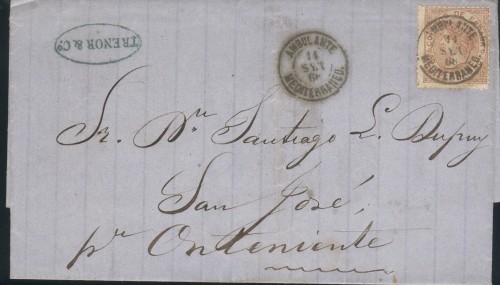 TRENOR & Cº
AMBULANTE
14
SET
68
MEDITERRANEO.
AMBULANTE
14
SET
68
MEDITERRANEO.
Sr. Dn. Santiago L. Dupuy
San José,
pr Onteniente